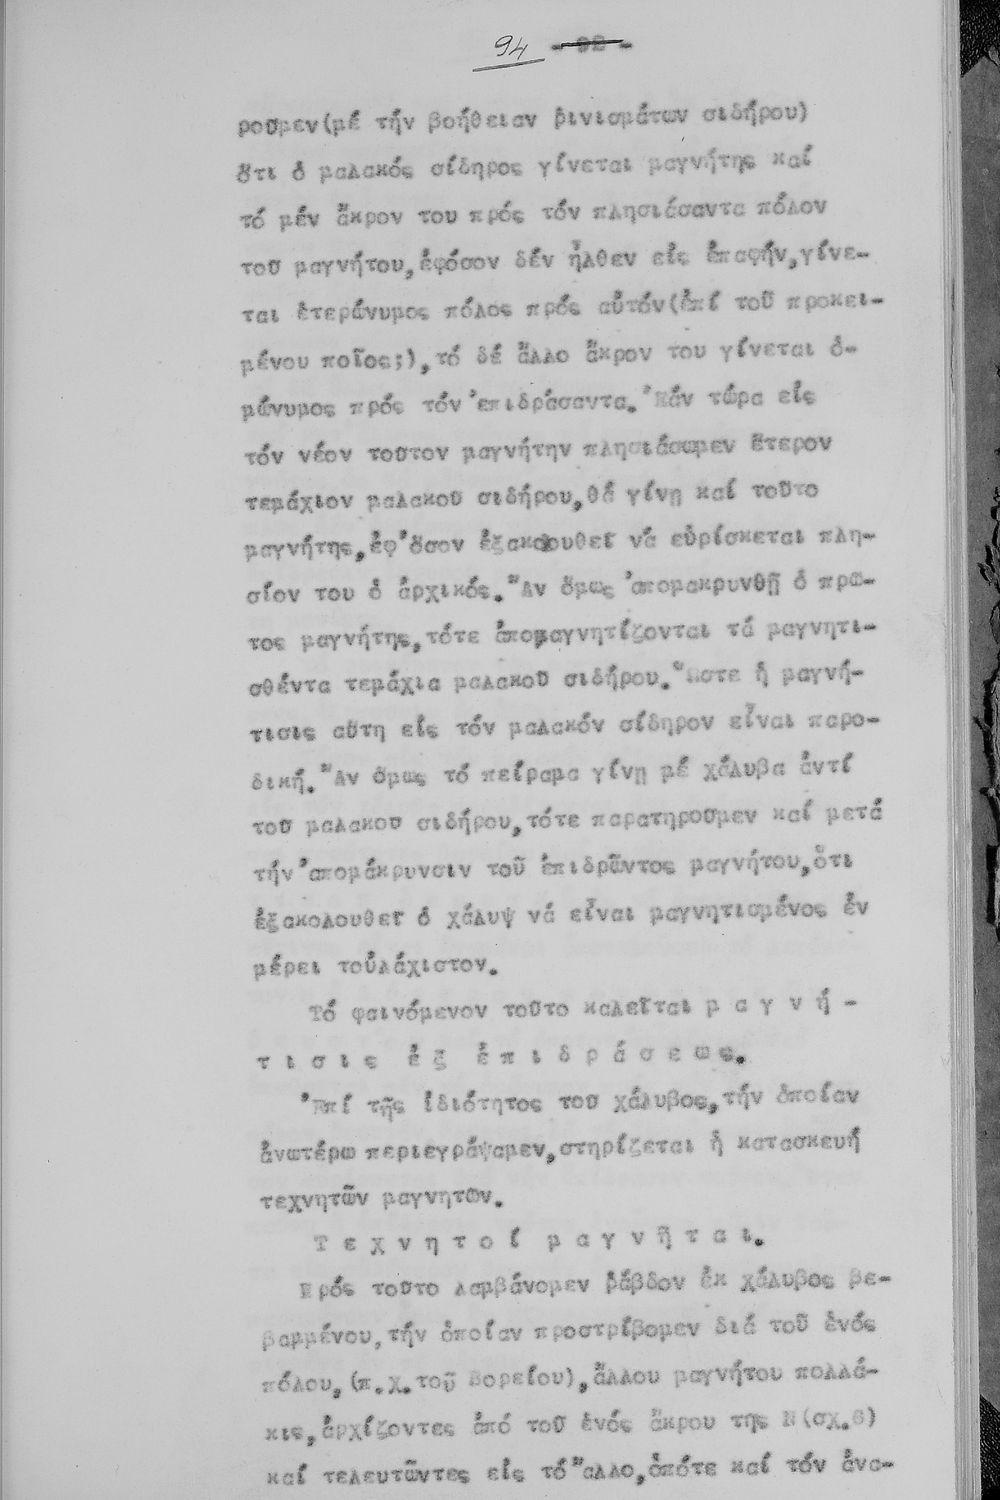 94 - 92 -
ροῦμεν(μέ τήν βοήθειαν ῥινισμάτων σιδήρου)
ὅτι ὁ μαλακός σίδηρος γίνεται μαγνήτης καί
τό μέν ἄκρον του πρός τόν πλησιάσαντα πόλον
τοῦ μαγνήτου,ἐφόσον δέν ἦλθεν εἰς ἐπαφήν,γίνε-
ται ἑτερώνυμος πόλος πρός αὐτόν(ἐπί τοῦ προκει-
μένου ποῖος;),τό δέ ἄλλο ἄκρον του γίνεται ὁ-
μώνυμος πρός τόν ἐπιδράσαντα. Ἐάν τώρα εἰς
τόν νέον τοῦτον μαγνήτην πλησιάσωμεν ἕτερον
τεμάχιον μαλακοῦ σιδήρου,θά γίνῃ καί τοῦτο
μαγνήτης,ἐφ'ὅσον ἐξακοουθεῖ νά εὑρίσκεται πλη-
σίον του ὁ ἀρχικός. Ἄν ὅμως ἀπομακρυνθῇ ὁ πρῶ-
τος μαγνήτης,τότε ἀπομαγνητίζονται τά μαγνητι-
σθέντα τεμάχια μαλακοῦ σιδήρου. Ὥστε ἡ μαγνή-
τισις αὕτη εἰς τόν μαλακόν σίδηρον εἶναι παρο-
δική. Ἄν ὅμως τό πείραμα γίνῃ μέ χάλυβα ἀντί
τοῦ μαλακοῦ σιδήρου,τότε παρατηροῦμεν καί μετά
τήν ἀπομάκρυνσιν τοῦ ἐπιδρῶντος μαγνήτου,ὅτι
ἐξακολουθεῖ ὁ χάλυψ νά εἶναι μαγνητισμένος ἐν
μέρει τοὐλάχιστον.
Τό φαινόμενον τοῦτο καλεῖται μ α γ ν ή -
τ ι σ ι ς ἐ ξ ἐ π ι δ ρ ά σ ε ω ς.
Ἐπί τῆς ἰδιότητος τοῦ χάλυβος,τήν ὁποίαν
ἀνωτέρω περιεγράψαμεν,στηρίζεται ἡ κατασκευή
τεχνητῶν μαγνητῶν.
Τ ε χ ν η τ ο ί μ α γ ν ῆ τ α ι.
Πρός τοῦτο λαμβάνομεν ῥάβδον ἐκ χάλυβος βε-
βαμμένου,τήν ὁποίαν προστρίβομεν διά τοῦ ἑνός
πόλου,(π.χ.τοῦ Βορείου),ἄλλου μαγνήτου πολλά-
κις,ἀρχίζοντες ἀπό τοῦ ἑνός ἄκρου της Ν(σχ.6)
καί τελευτῶντες εἰς τό ἄλλο,ὁπότε καί τόν ἀνα-